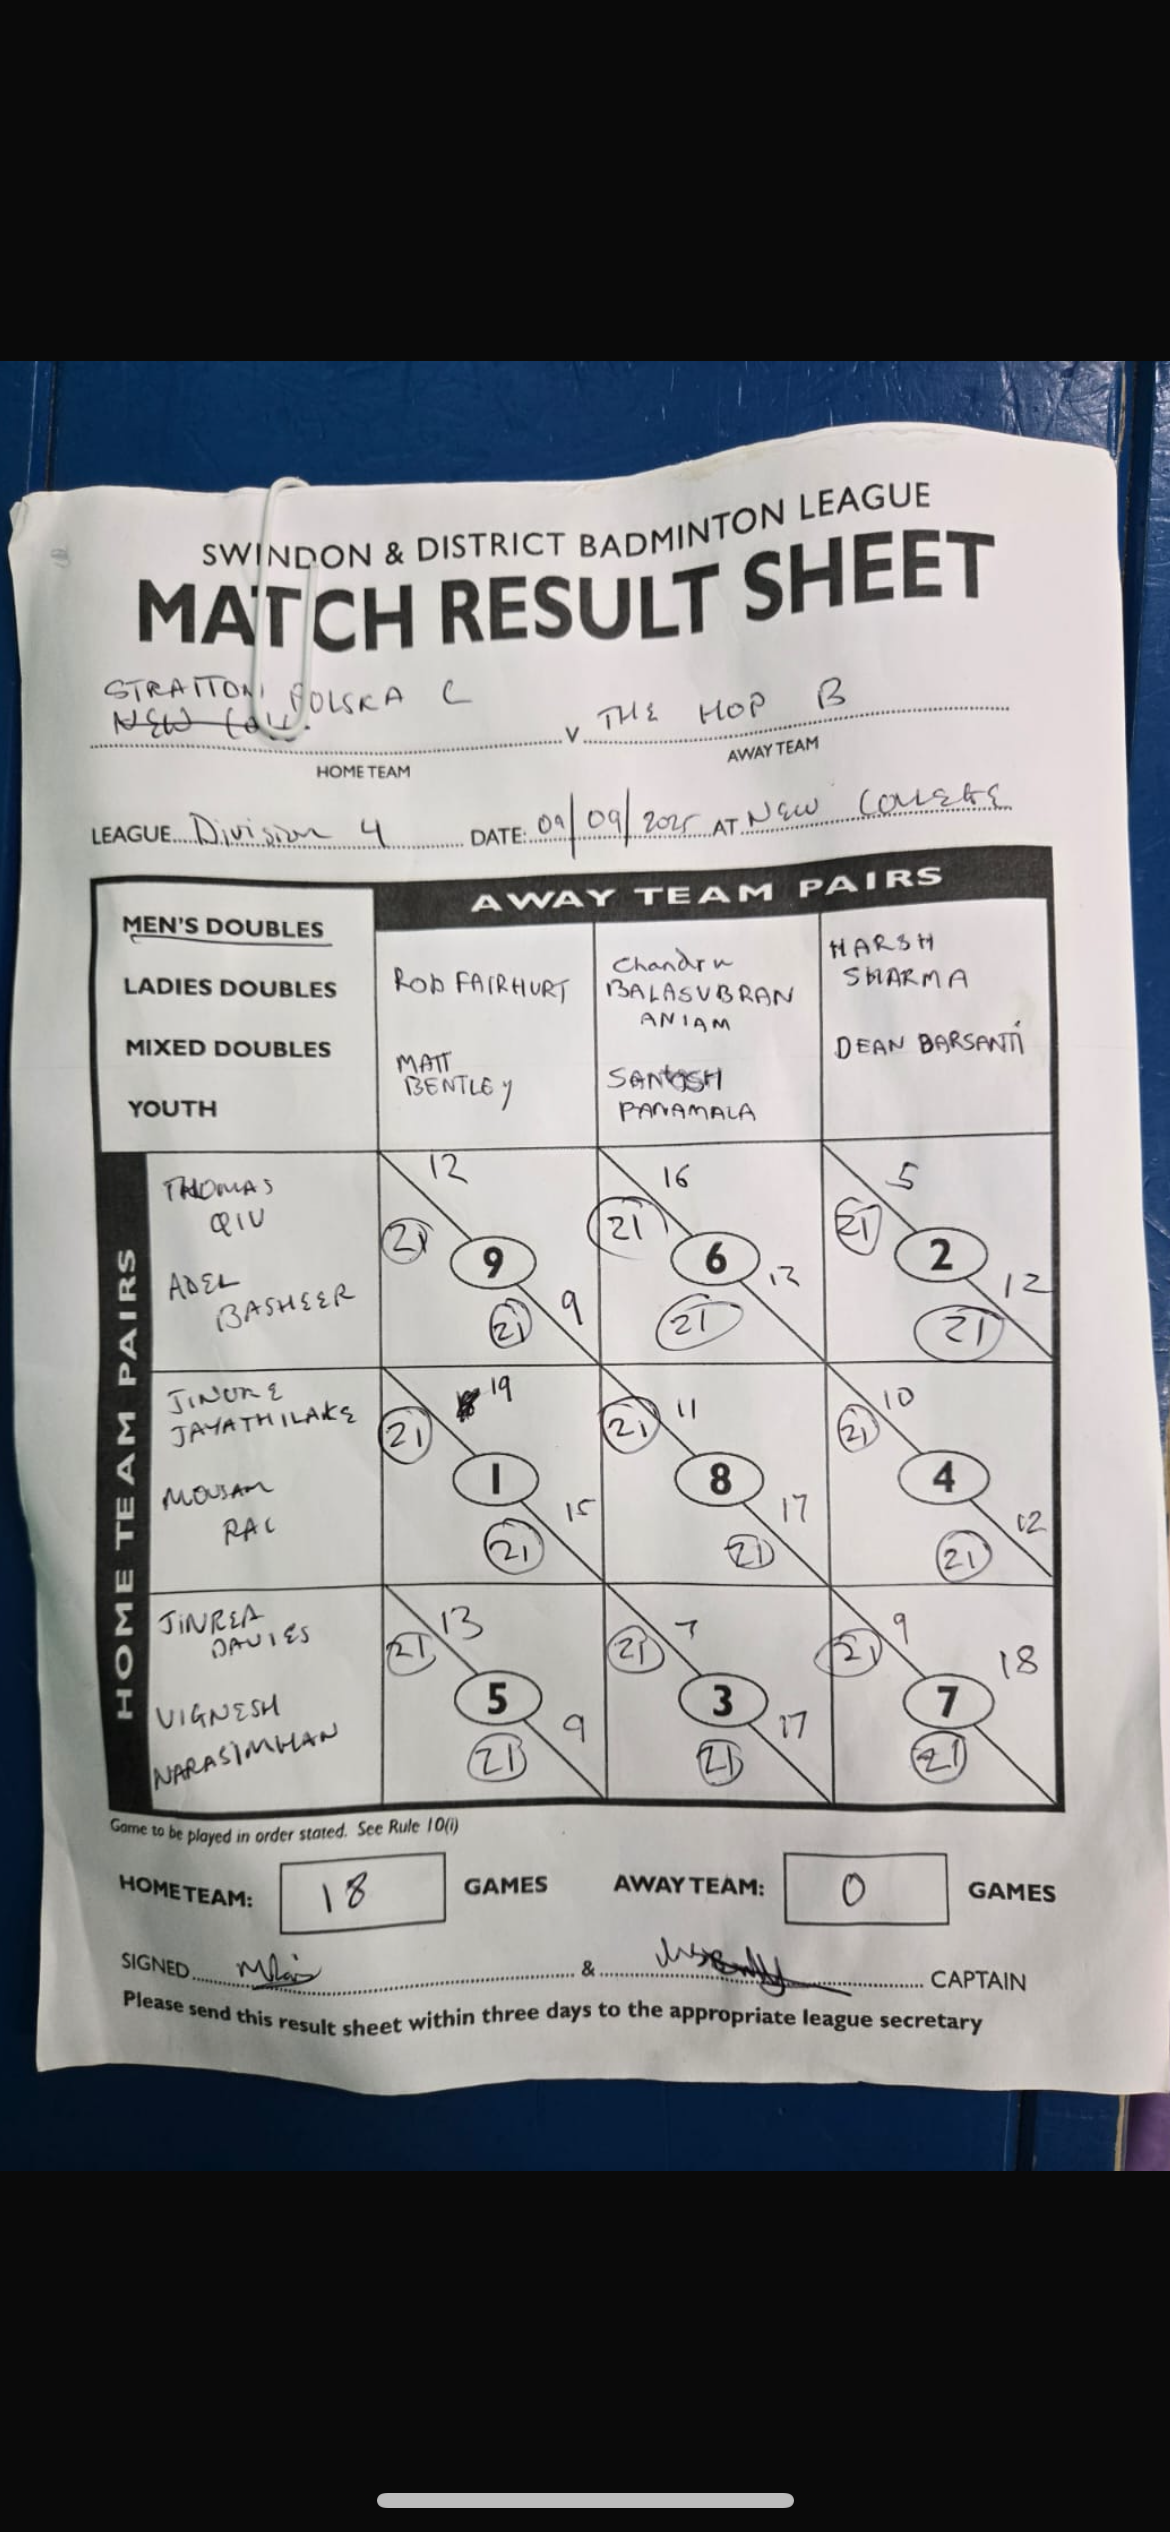 SWINDON & DISTRICT BADMINTON LEAGUE
MATCH RESULT SHEET
STRATTON POLSKA C
NEW COLL.
v THE HOP B
HOME TEAM
AWAY TEAM
LEAGUE Division 4 DATE: 09/09/2025 AT NEW COLLEGE
AWAY TEAM PAIRS
MEN'S DOUBLES
LADIES DOUBLES
MIXED DOUBLES
YOUTH
ROB FAIRHURT
MATT
BENTLEY
Chandru
BALASUBRAN
ANIAM
SANTOSH
PANAMALA
HARSH
SHARMA
DEAN BARSANTI
HOME TEAM PAIRS
THOMAS
QIU
ADEL
BASHEER
12
21
9
9
21
16
21
6
13
21
5
21
2
12
21
JAYATHILAKE
MOUSAM
RAI
19
21
1
15
21
11
21
8
17
21
10
21
4
12
21
DAVIES
VIGNESH
NARASIMHAN
13
21
5
9
21
7
21
3
17
21
9
21
7
18
21
Game to be played in order stated. See Rule 10(i)
HOME TEAM: 18 GAMES AWAY TEAM: 0 GAMES
SIGNED & CAPTAIN
Please send this result sheet within three days to the appropriate league secretary